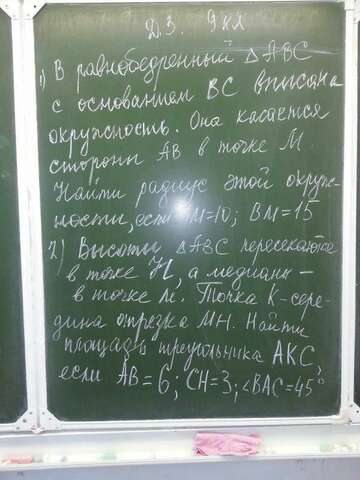 Д.З. 9 кл
1) В равнобедренный △ABC
с основанием BC вписана
окружность. Она касается
стороны AB в точке M
Найти радиус этой окруж-
ности, если AM=10; BM=15
2) Высоты △ABC пересекаются
в точке H, а медианы –
в точке M. Точка K-сере-
дина отрезка MH. Найти
площадь треугольника AKC,
если AB=6; CH=3; ∠BAC=45°